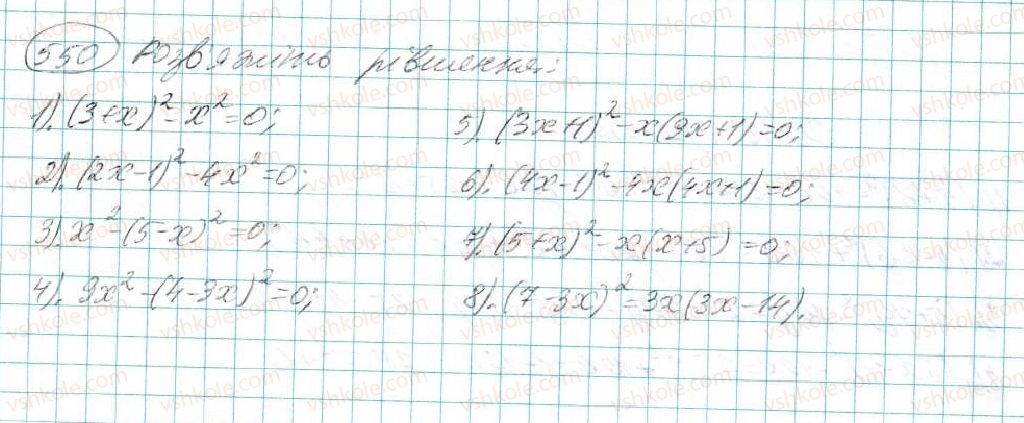 550 Розв'яжіть рівняння:
1). (3+x)² - x² = 0;
2). (2x-1)² - 4x² = 0;
3). x² - (5-x)² = 0;
4). 9x² - (4-3x)² = 0;
5). (3x+1)² - x(9x+1) = 0;
6). (4x-1)² - 4x(4x+1) = 0;
7). (5+x)² - x(x+5) = 0;
8). (7-3x)² = 3x(3x-14).
vshkole.com